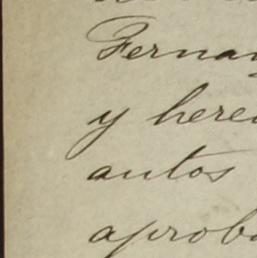 Ferna
y here
autos
aproba